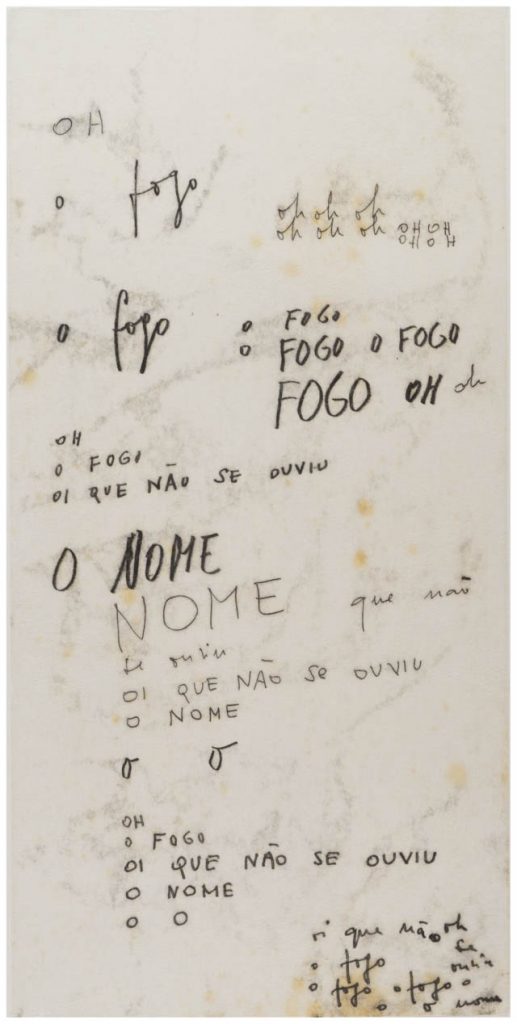 OH
o fogo
oh oh oh
oh oh oh OH OH
OH OH
o fogo
o FOGO
o FOGO O FOGO
FOGO OH oh
OH
O FOGO
OI QUE NÃO SE OUVIU
O NOME
NOME que não
se ouviu
OI QUE NÃO Se OUVIU
O NOME
O O
OH
O FOGO
OI QUE NÃO SE OUVIU
O NOME
O O
oi que não oh
se
o fogo ouviu
o fogo o fogo o
o nome